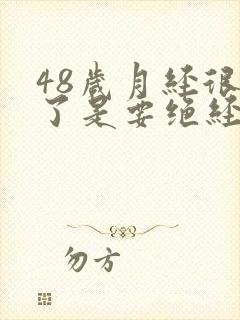 48歲月经很
了是要绝经
勿方